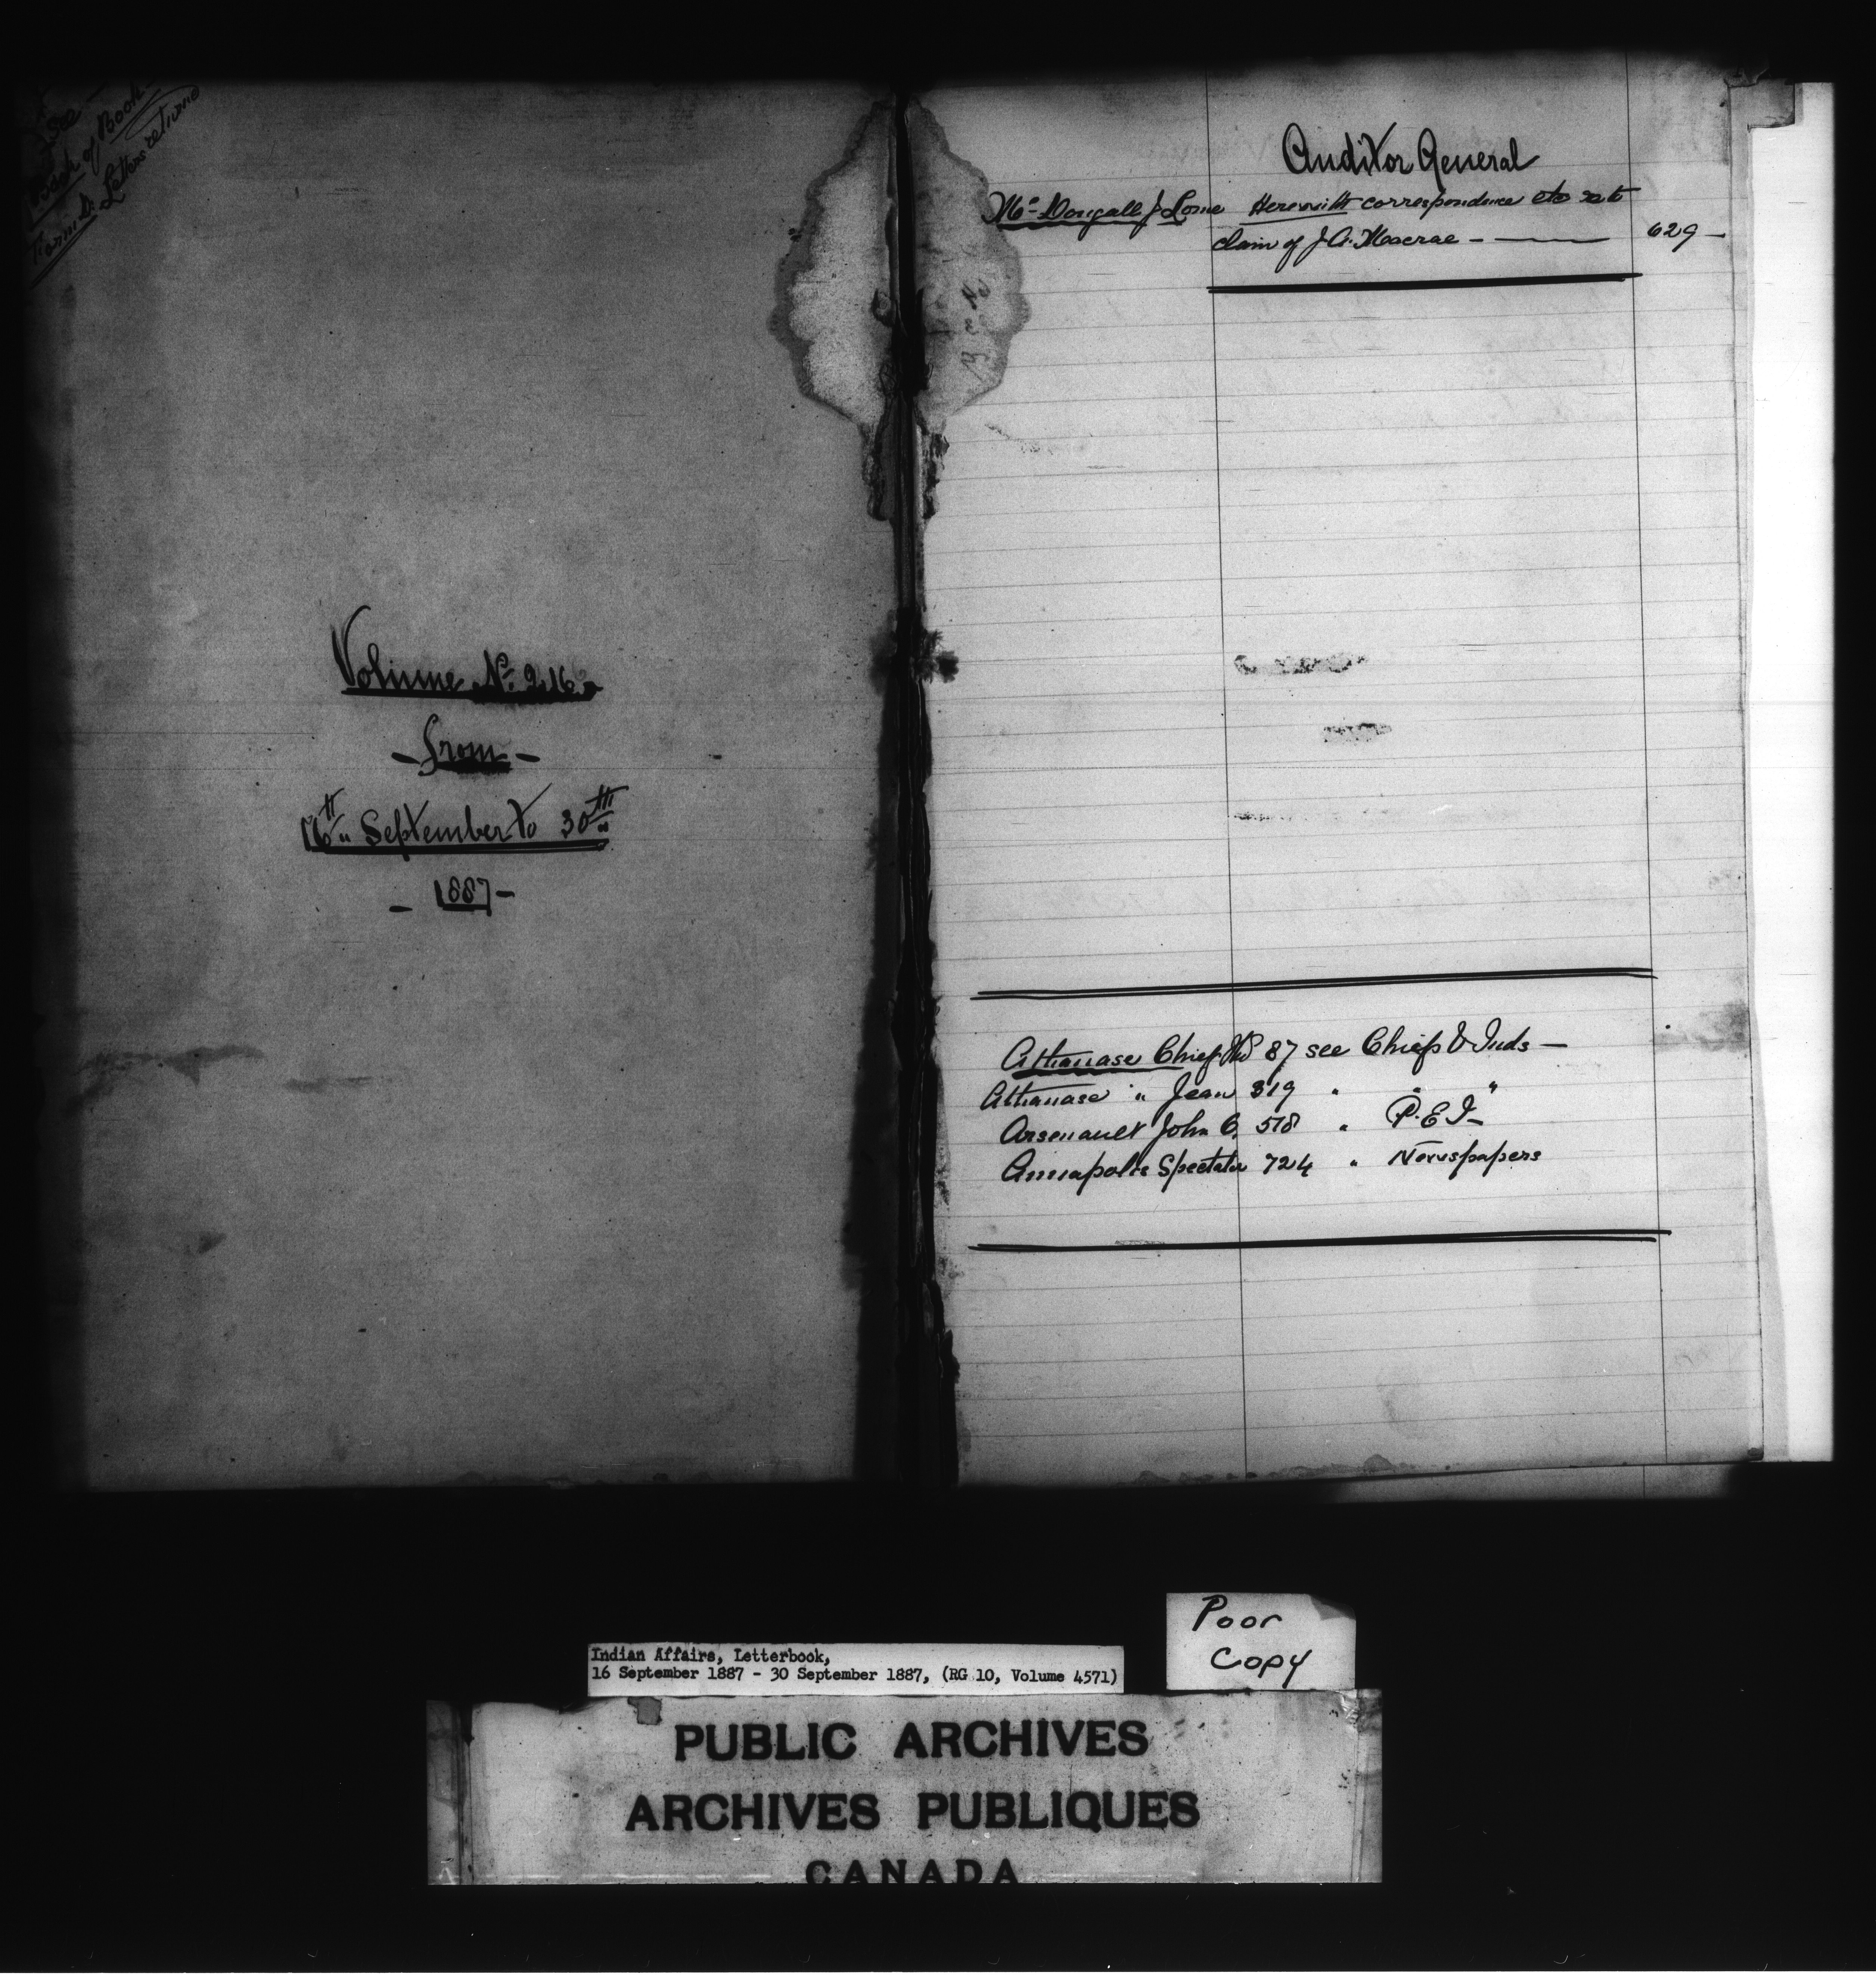 See
Back of Book
Form D. Letters returned
Volume No. 216
- from -
16th September to 30th
- 1887 -
Auditor General
McDougall J Lorne Herewith correspondence etc re to
claim of J. A. Macrae - 629 -
Athanase Chief 87 see Chiefs & Inds -
Athanase " Jean 319 " " "
Arsenault John O. 518 " P.E.I -
Annapolis Spectator 724 " Newspapers
Poor
Copy
Indian Affairs, Letterbook,
16 September 1887 - 30 September 1887, (RG 10, Volume 4571)
PUBLIC ARCHIVES
ARCHIVES PUBLIQUES
CANADA